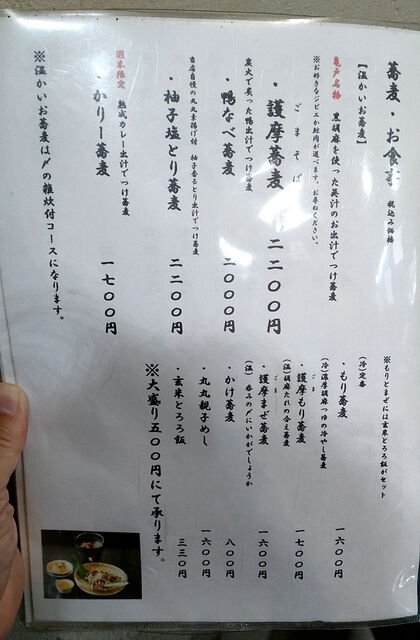 蕎麦・お食事 税込み価格
【温かいお蕎麦】
亀戸名物 黒胡麻を使った美汁のお出汁でつけ蕎麦
※お好きなジビエか鮮肉が選べます、お尋ねください。
・護摩蕎麦 二二〇〇円
ごまそば
炭火で炙った鴨出汁でつけ蕎麦
・鴨なべ蕎麦 二〇〇〇円
当店自慢の丸丸素揚げ付 柚子香るとり出汁でつけ蕎麦
・柚子塩とり蕎麦 二二〇〇円
週末限定 熟成カレー出汁でつけ蕎麦
・かりー蕎麦 一七〇〇円
※温かいお蕎麦は〆の雑炊付コースになります。
※もりとまぜには玄米とろろ飯がセット
(冷)定番
・もり蕎麦 一六〇〇円
(冷)濃厚胡麻つゆの冷やし蕎麦
ごま
・護摩もり蕎麦 一七〇〇円
(温)胡麻たれの合え蕎麦
ごま
・護摩まぜ蕎麦 一六〇〇円
(温)呑みの〆にいかがでしょうか
・かけ蕎麦 八〇〇円
・丸丸親子めし 一六〇〇円
・玄米とろろ飯 三三〇円
※大盛り五〇〇円にて承ります。